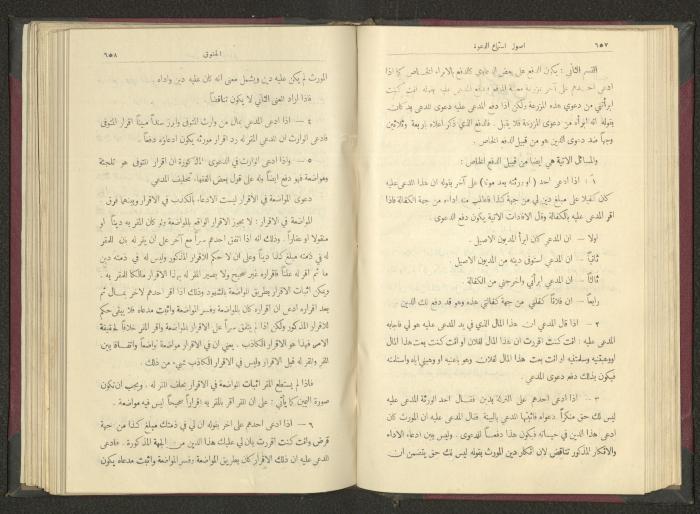 ٦٥٧ اصول استماع الدعوة
القسم الثاني : يكون الدفع على بعض الدعاوي كالدفع بالابراء الخاص كما اذا
ادعى احدهم على آخر بمزرعة معينة الموقع ودفع المدعى عليه بقوله انت كنت
ابرأتني من دعوي هذه المزرعة ولكن اذا دفع المدعى عليه دعوى المدعي بد كان
بقوله انه ابرأه من دعوى المزرعة فلا يقبل . فالدفع الذي ذكر اعلاه باربعة وثلاثين
وجهاً ضد دعوى الدين هو من قبيل الدفع الخاص .
والمسائل الآتية هي ايضا من قبيل الدفع الخاص :
١ : اذا ادعى احد ( او ورثته بعد موته ) على آخر بقوله ان هذا المدعى عليه
كان كفيلا على مبلغ دين لي من جهة كذا فاطلب منه اداءه من جهة الكفالة فاذا
اقر المدعى عليه بالكفالة وقال الافادات الآتية يكون دفع الدعوى .
اولا – ان المدعي كان ابرأ المديون الاصيل .
ثانياً – ان المدعي استوفى دينه من المديون الاصيل .
ثالثاً – ان المدعي ابرأني واخرجني من الكفالة .
رابعاً – ان فلاناً كفلني من جهة كفالتي هذه وهو قد دفع لك الدين
٢ – اذا قال المدعي ان هذا المال الذي في يد المدعى عليه هو لي فاجابه
المدعى عليه : انت كنت اقررت ان هذا المال لفلان او انت كنت بعت هذا المال
او وهبتنيه وسلمتنيه او انت بعت هذا المال لفلان وهو باعنيه او وهبني اياه واستلمته
فيكون بذلك دفع دعوى المدعي .
٣ – اذا ادعى احدهم على التركة بدين فقال احد الورثة المدعى عليه
ليس لك حق منكراً دعواه فاثبتها المدعي بالبينة فقال المدعى عليه ان المورث كان
ادعى هذا الدين في حياته فيكون هذا دفعاً للدعوى . وليس بين ادعاء الاداء
والانكار المذكور تناقض لان انكار دين المورث بقوله ليس لك حق يتضمن ان
المتفرق ٦٥٨
المورث لم يكن عليه دين ويشمل معنى انه كان عليه دين واداه
فاذا اراد المعنى الثاني لا يكون تناقضاً .
٤ – اذا ادعى المدعي بمال من وارث المتوفى وابرز سنداً مبيناً اقرار المتوفى
فادعى الوارث ان المدعي المقر له رد اقرار مورثه يكون ادعاؤه دفعاً .
٥ – واذا ادعى الوارث في الدعوى المذكورة ان اقرار المتوفى هو تلجئة
ومواضعة فهو دفع ايضاً وله على قول بعض الفقهاء تحليف المدعي
دعوى المواضعة في الاقرار ليست الادعاء بالكذب في الاقرار وبينهما فرق
المواضعة في الاقرار : لا يجوز الاقرار الواقع بالمواضعة ولو كان المقر به ديناً او
منقولا او عقاراً . وذلك انه اذا اتفق احدهم سراً مع آخر على ان يقر له بان للمقر
له في ذمته مبلغ كذا ديناً وعلى ان لا حكم للاقرار المذكور وليس له في ذمته دين
ما ثم اقر له علناً فاقراره غير صحيح ولا يصير المقر له بهذا الاقرار مالكا للمقر به .
ويمكن اثبات الاقرار بطريق المواضعة بالشهود وذلك اذا اقر احدهم لاخر بمال ثم
بعد اقراره ادعى ان اقراره كان بالمواضعة وفسر المواضعة واثبت مدعاه فلا يبقى حكم
للاقرار المذكور ولكن اذا لم يتفق سراً على الاقرار بالمواضعة واقر المقر خلافاً لحقيقة
الامر فهذا هو الاقرار الكاذب . يعني ان في الاقرار مواضعة تواضعاً واتفاقاً بين
المقر والمقر له قبيل الاقرار وليس في الاقرار الكاذب شيء من ذلك .
فاذا لم يستطع المقر اثبات المواضعة في الاقرار يحلف المقر له . ويجب ان تكون
صورة اليمين كما يأتي : على ان المقر اقر بالمقر به اقراراً صحيحاً ليس فيه مواضعة .
٦ – اذا ادعى احدهم على آخر بقوله ان لي في ذمتك مبلغ كذا من جهة
قرض وانت كنت اقررت بان لي عليك هذا الدين من الجهة المذكورة . فادعى
المدعى عليه ان ذلك الاقرار كان بطريق المواضعة وفسر المواضعة واثبت مدعاه يكون